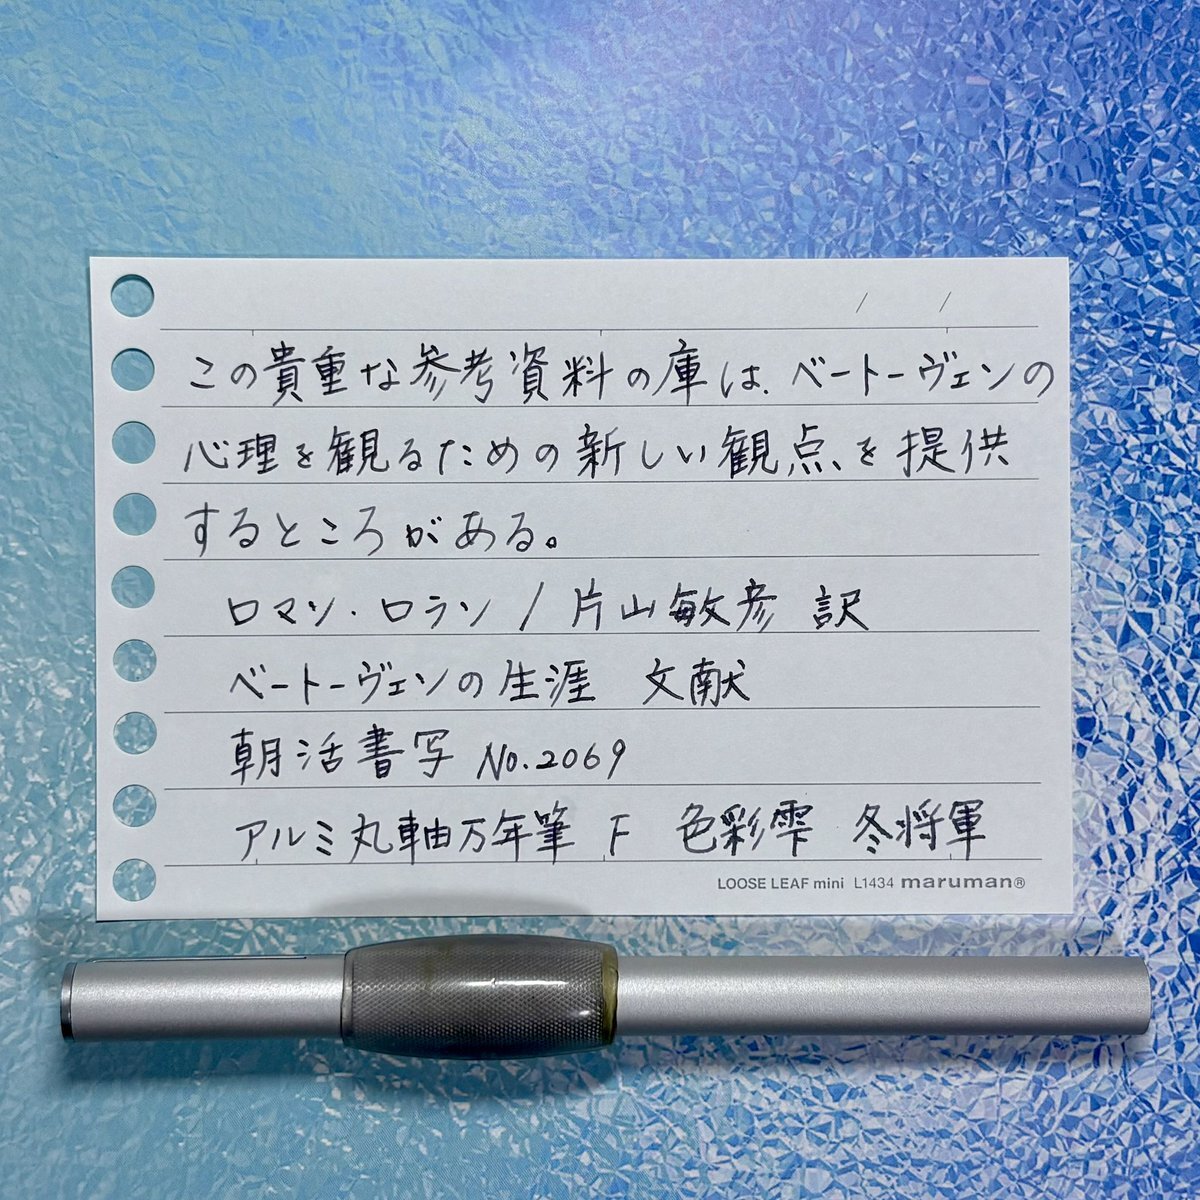 / /
この貴重な参考資料の庫は、ベートーヴェンの
心理を観るための新しい観点、を提供
するところがある。
ロマン・ロラン / 片山敏彦 訳
ベートーヴェンの生涯 文献
朝活書写 No.2069
アルミ丸軸万年筆 F 色彩雫 冬将軍
LOOSE LEAF mini L1434 maruman®